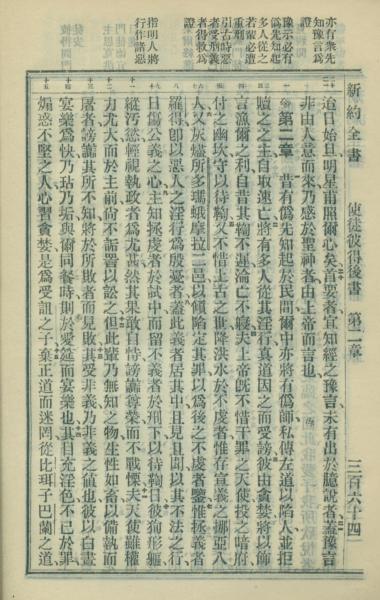 新約全書 使徒彼得後書 第二章 三百六十四
亦有衆先
知豫言爲
證
豫示必有
僞先知起
多人從之
若輩必遭
重刑
引古時惡
者受刑義
者得救爲
證
指明人將
行作諸惡
迨日始旦明星甫照爾心矣首要者宜知經之豫言未有出於臆說者蓋豫言
非由人意而來乃感於聖神者由上帝而言也
第二章 昔有僞先知起於民間爾中亦將有僞師私傳左道以陷人並拒
贖之之主自取速亡將有多人從其淫行眞道因之而受謗彼由貪婪將以飾
言漁爾之利自昔其鞫不遲淪亡不寢夫上帝旣不惜干罪之天使投之暗府
付之幽坎守以待鞫又不惜上古之世降洪水於不虔者惟存宣義之挪亞八
人又灰燼所多瑪蛾摩拉二邑以傾陷定其罪以爲後之不虔者鑒惟拯義者
羅得卽以惡人之淫行爲殷憂者蓋此義者居其中且見且聞以其不法之行
日傷公義之心主知拯虔者於試中而留不義者於刑下以待鞫日彼徇形軀
縱汚慾輕視執政者爲尤甚然其果敢自恃謗讟尊榮而不戰慄夫天使雖權
力尤大而於主前尚不詬詈以訟之但此輩乃無知之物生性如畜以備執而
屠者謗讟其所不知將於所敗者而見敗其受非義乃非義之値也彼以白晝
宴樂爲快乃玷乃垢與爾同餐時則於愛筵而宴樂也其目充淫色不已於罪
媚惑不堅之人心習貪婪是爲受詛之子棄正道而迷罔從比珥子巴蘭之道